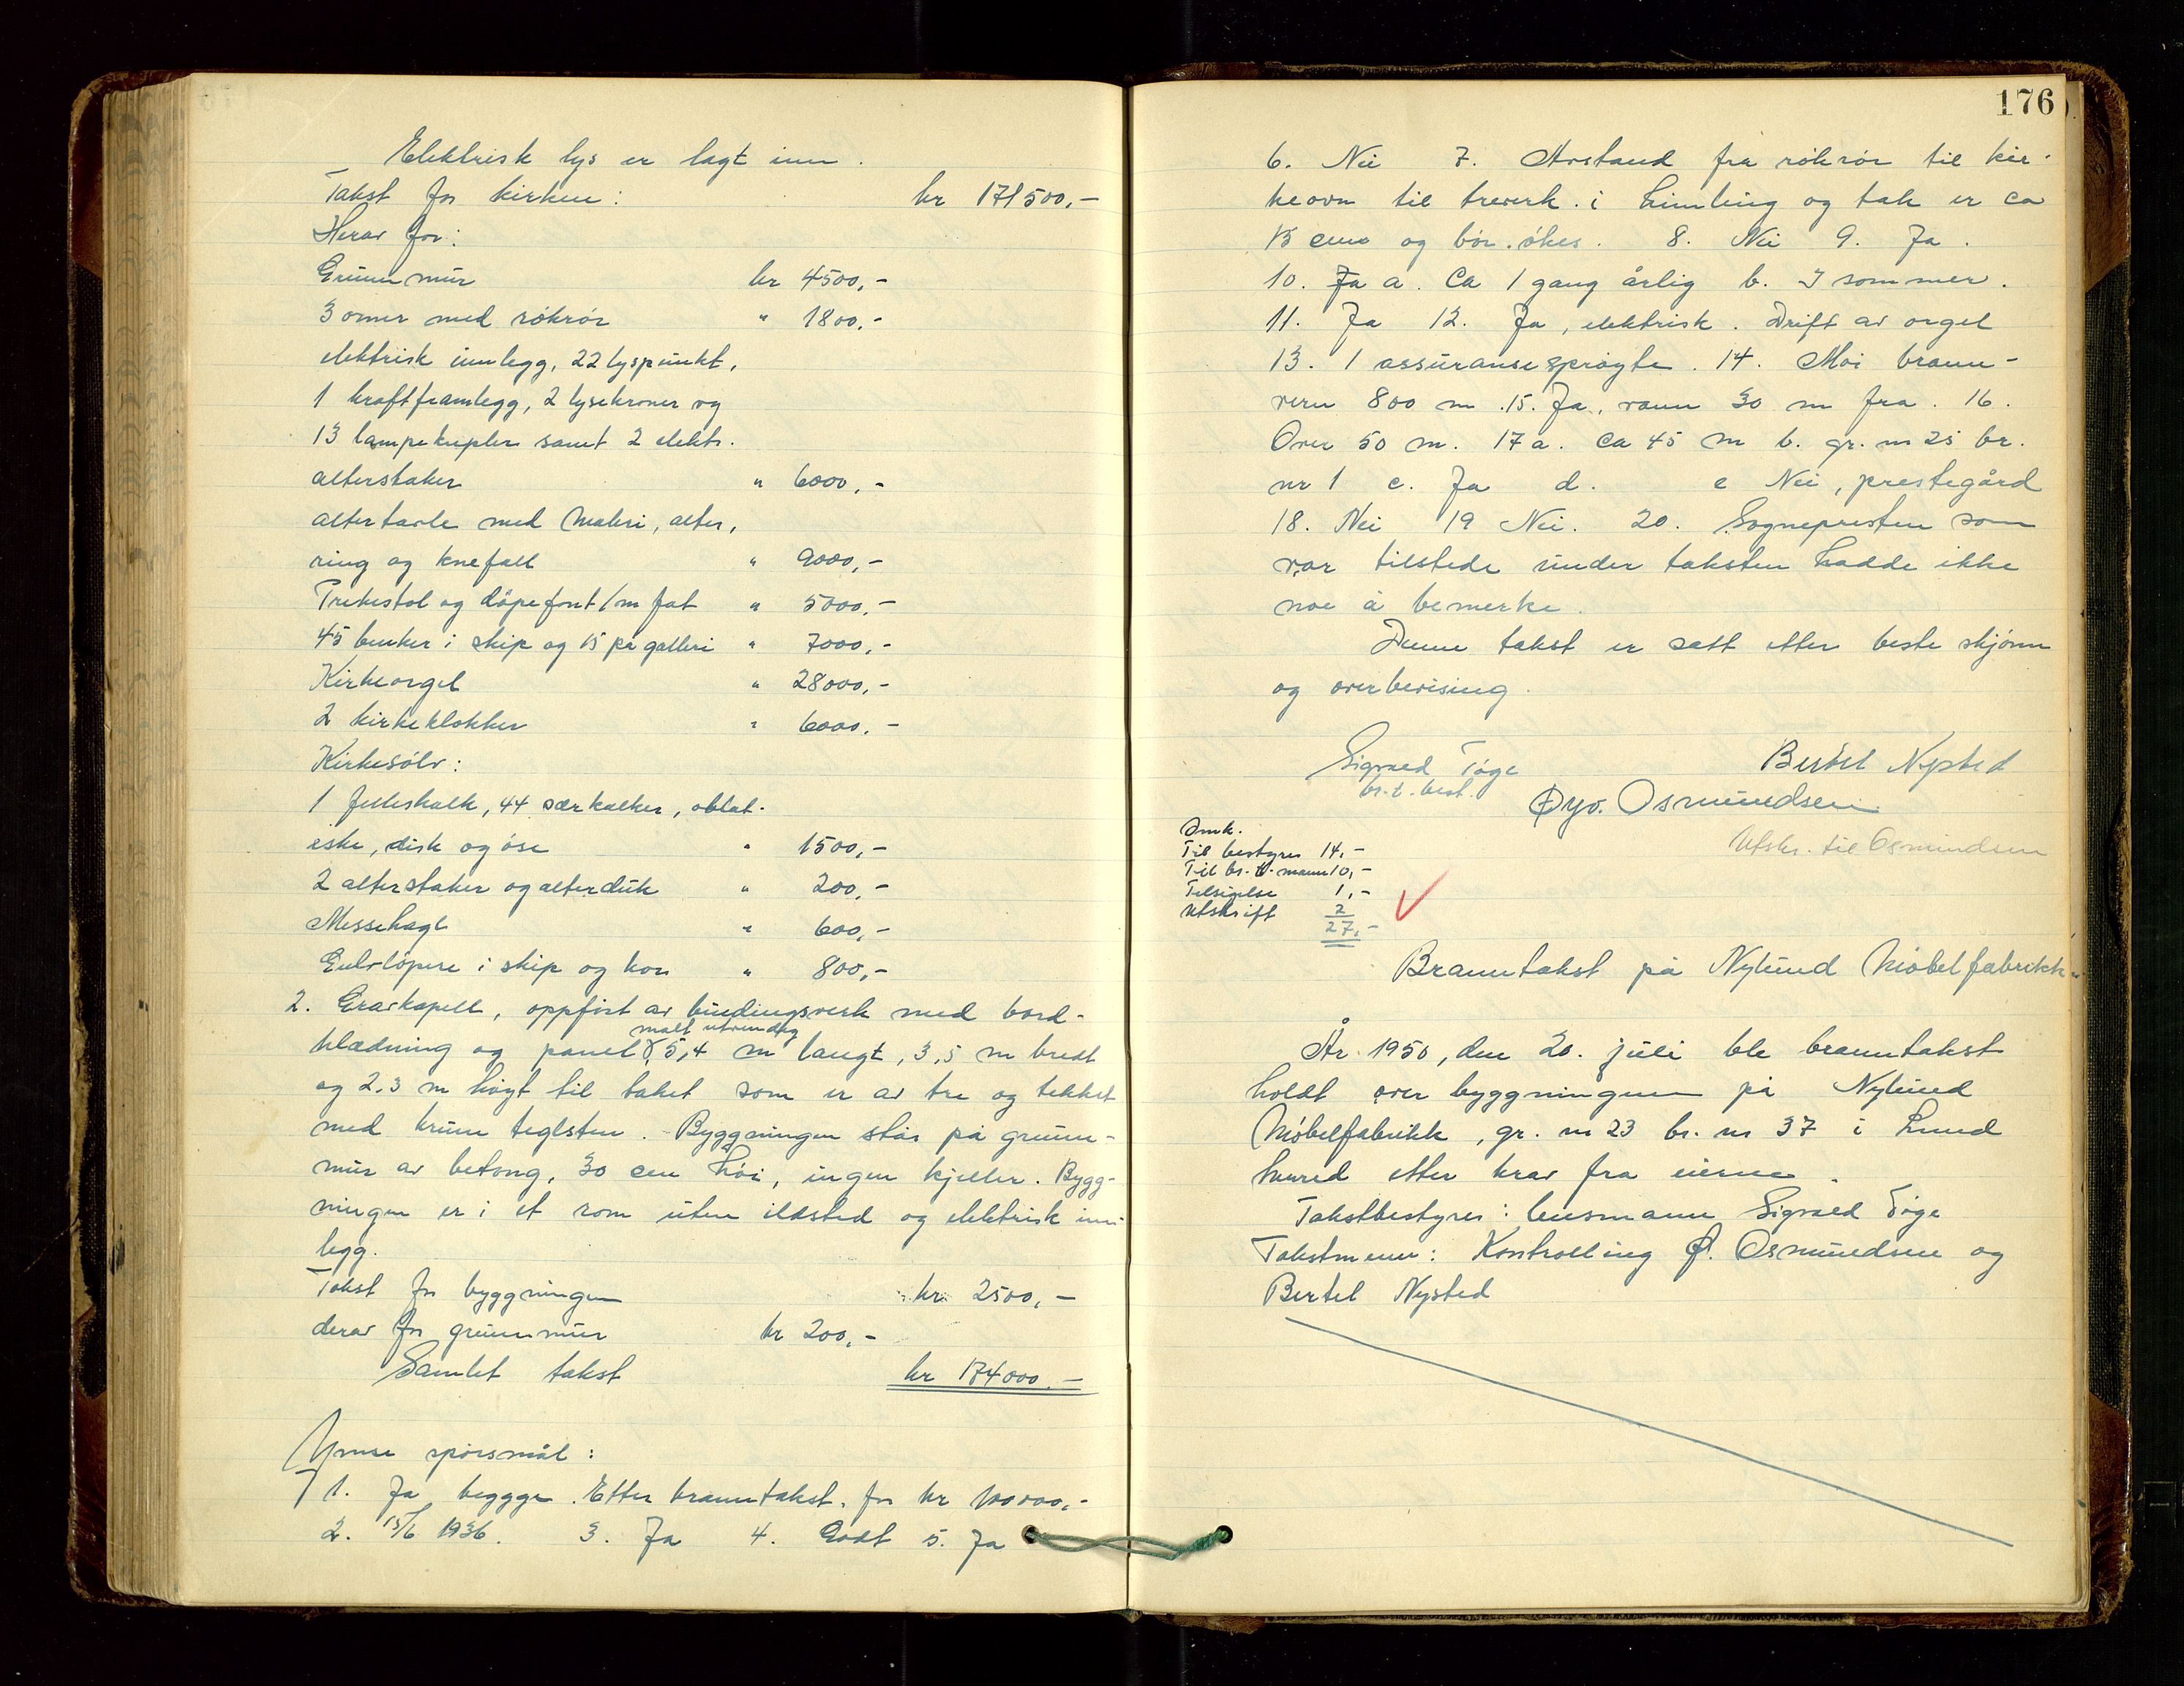 Elektrisk lys er lagt inn.
Takst for kirken: kr 171500,-
Herav for:
Grunnmur kr 4500,-
3 ovner med rökrör " 1800,-
elektrisk innlegg, 22 lyspunkt,
1 kraftframlegg, 2 lysekroner og
13 lampekupler samt 2 elektr.
alterstaker " 6000,-
altertavle med maleri, alter,
ring og knefall " 9000,-
Prekestol og döpefont/m fat " 5000,-
45 benker i skip og 15 på galleri " 7000,-
Kirkeorgel " 28000,-
2 kirkeklokker " 6000,-
Kirkesölv:
1 felleskalk, 44 særkalker, oblat-
eske, disk og öse " 1500,-
2 alterstaker og alterduk " 200,-
Messehagl " 600,-
Gulvlöpere i skip og kor " 800,-
2. Gravkapell, oppfört av bindingsverk med bord-
malt utvendig
klædning og panel 5,4 m langt, 3,5 m bredt
og 2,3 m höyt til taket som er av tre og tekket
med krum teglsten. Byggningen står på grunn-
mur av betong, 30 cm höi, ingen kjeller. Bygg-
ningen er i et rom uten ildsted og elektrisk inn-
legg.
Takst for byggningen kr 2500,-
derav for grunnmur kr 200,-
Samlet takst kr 174000,-
Ymse spörsmål:
1. Ja begge. Etter branntakst. for kr 100000,-
2. 15/6 1936. 3. Ja 4. Godt 5. Ja
176
6. Nei 7. Avstand fra rökrör til kir-
keovn til treverk i himling og tak er ca
15 cm og bör ökes. 8. Nei 9. Ja.
10. Ja a. Ca 1 gang årlig b. I sommer.
11. Ja 12. Ja, elektrisk. Drift av orgel
13. 1 assuransesprøyte. 14. Moi brann-
vern 800 m. 15. Ja, vann 30 m fra. 16.
Over 50 m. 17 a. Ca 45 m b. gr. nr 25 br.
nr 1 c. Ja d. e Nei, prestegård
18. Nei 19 Nei. 20. Sognepresten som
var tilstede under taksten hadde ikke
noe å bemerke.
Denne takst er satt etter beste skjönn
og overbevising.
Sigvald Töge Bertel Nysted
br.t.best. Øyv. Osmundsen
Utskr. til Osmundsen
Omk.
Til bestyrer 14,-
Til br.t.mann 10,-
Tilsigelse 1,-
Utskrift 2
27,-
Branntakst på Nylund Möbelfabrikk
År 1950, den 20. juli ble branntakst
holdt over byggningene på Nylund
Möbelfabrikk, gr. nr 23 br. nr 37 i Lund
herred etter krav fra eierne.
Takstbestyrer: lensmann Sigvald Töge
Takstmenn: Kontrolling Ø. Osmundsen og
Bertel Nysted